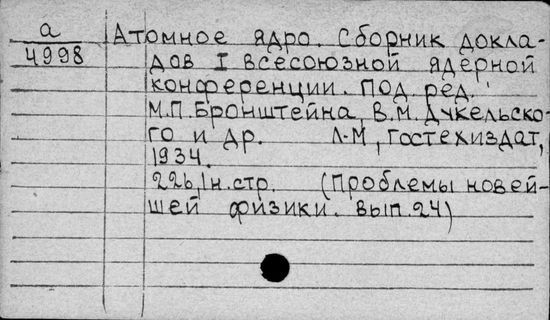 а Атомное ядро. Сборник докла-
4998 дов I всесоюзной ядерной
конференции. Под. ред.
М.П.Бронштейна, В.М.Дукельско-
го и др. Л-М, Гостехиздат,
1934.
226,1н.стр. (Проблемы новей-
шей физики. вып.24)